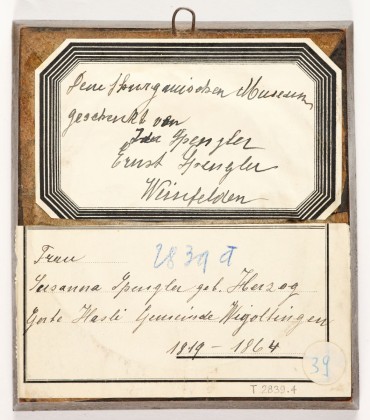 Dem thurgauischen Museum
geschenkt von
Ida Spengler
Ernst Spengler
Weinfelden
Frau
2839 T
Susanna Spengler geb. Herzog
Hasli Gemeinde Wigoltingen
1819 - 1864
39
T 2839.4